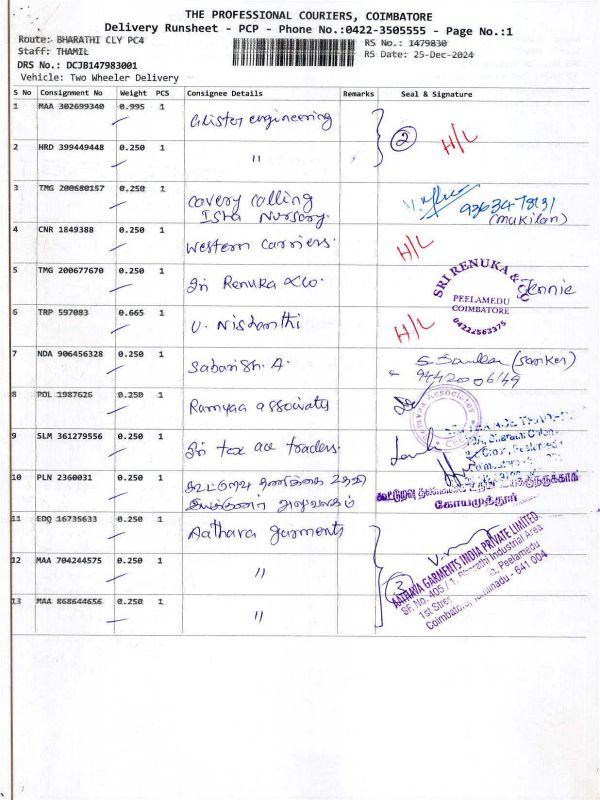 THE PROFESSIONAL COURIERS, COIMBATORE
Delivery Runsheet - PCP - Phone No.:0422-3505555 - Page No.:1
Route: BHARATHI CLY PC4
RS No.: 1479830
Staff: THAMIL
RS Date: 25-Dec-2024
DRS No.: DCJB147983001
Vehicle: Two Wheeler Delivery
S No Consignment No Weight PCS Consignee Details Remarks Seal & Signature
1 MAA 302699340 0.995 1 engineering 2 H/L
2 HRD 399449448 0.250 1 "
3 TMG 200680157 0.250 1 covery calling
Isha Nursery. 93634 78131
(mukilan)
4 CNR 1849388 0.250 1 Western Carriers. H/L
5 TMG 200677670 0.250 1 Sri Renuka & co. SRI RENUKA & CO
PEELAMEDU
COIMBATORE
04222563375
Jennie
6 TRP 597083 0.665 1 V. Nishanthi H/L
7 NDA 906456328 0.250 1 Sabarish. A. (Sanker)
9442006149
8 POL 1987626 0.250 1 Ramyaa associates
9 SLM 361279556 0.250 1 Sri tax ace traders.
10 PLN 2360031 0.250 1 கூட்டுறவு தணிக்கை உதவி
இயக்குனர் அலுவலகம்
கோயமுத்தூர்
11 EDQ 16735633 0.250 1 Aathava garments
12 MAA 704244575 0.250 1 "
3
AATHAVA GARMENTS INDIA PRIVATE LIMITED
SF. No. 405 / 1, Bharathi Industrial Area
1st Street, Peelamedu
Coimbatore, Tamilnadu - 641 004
13 MAA 868644656 0.250 1 "